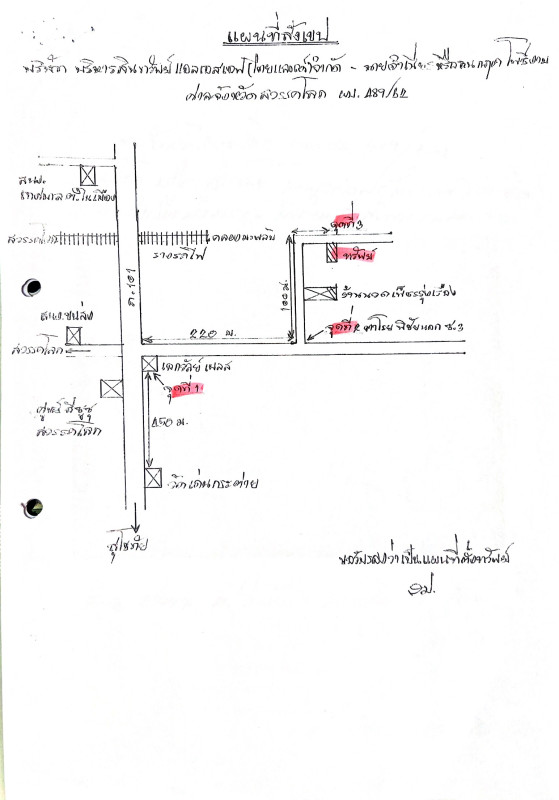 แผนที่สังเขป
บริษัท บริหารสินทรัพย์ แอลเอสเอฟ (ไทยแลนด์) จำกัด - นาย หรือ โพธิ์งาม
ศาลจังหวัดสวรรคโลก ผบ. 489/62
สนง.
เทศบาล ต.ในเมือง
สวรรคโลก
คลองมะพลับ
รางรถไฟ
ถ.101
จุดที่ 3
ทรัพย์
100 ม.
ร้านนวดเพชรรุ่งเรือง
สนง.ขนส่ง
220 ม.
จุดที่ 2
ซ.3
สวรรคโลก
เอกวัลย์ เพลส
จุดที่ 1
ศูนย์ อีซูซุ
สวรรคโลก
450 ม.
วัดเด่นกระต่าย
สุโขทัย
ขอรับรองว่าเป็นแผนที่ตั้งทรัพย์